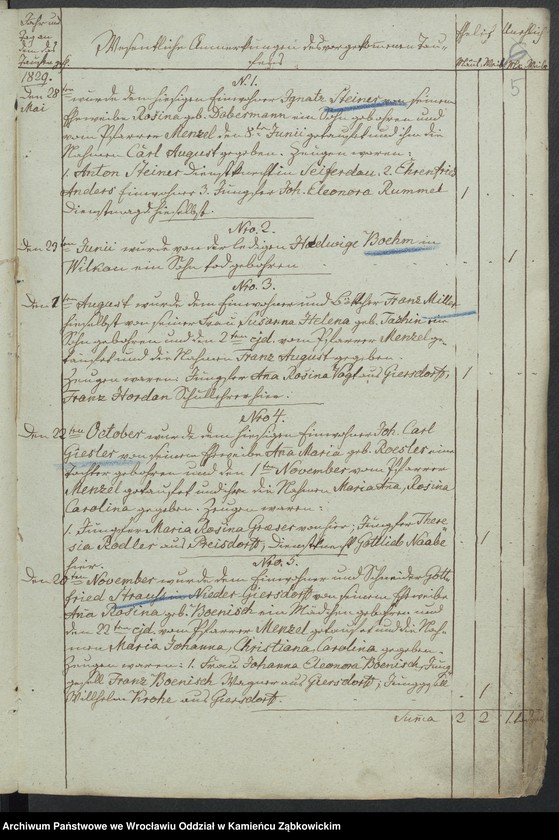 Jahr und
Tag an
dem das
Taufen gesch.
Wesentliche Anmerkungen des vorgekommenen Tau-
fens
Ehelich Unehlich
Männl. Weibl. Mä. Weibl.
5
1829.
No. 1.
Den 28ten wurde dem hiesigen Einwohner Ignatz Steiner von seinem
Mai Eheweibe Rosina geb. Dobermann ein Sohn geboren und
vom Pfarrer Menzel den 8ten Junii getauft und ihm die
Nahmen Carl August gegeben. Zeugen waren:
1. Anton Steiner Dienstknecht in Seiferdau, 2. Ehrenfried
Anders Einwohner 3. Jungfer Joh. Eleonora Rummel
Dienstmagd hieselbst. 1
Nro. 2.
Den 29ten Junii wurde von der ledigen Hedwige Boehm in
Wilkau ein Sohn tod geboren 1
Nro. 3.
Den 1ten August wurde dem Einwohner und Franz Müller
hieselbst von seiner Frau Susanna Helena geb. ein
Sohn geboren und den 2ten ejd. vom Pfarrer Menzel ge-
tauft und die Nahmen Franz August gegeben.
Zeugen waren: Jungfer Ana Rosina Vogt aus Giersdorf, 1
Franz Hordan Schullehrer hier.
Nro 4.
Den 22ten October wurde dem hiesigen Einwohner Joh. Carl
Giesler von seinem Eheweibe Ana Maria geb. Roesler eine
Tochter geboren und den 1ten November vom Pfarrer
Menzel getauft und ihr die Nahmen Maria Ana, Rosina
Carolina gegeben. Zeugen waren:
1. Jungfer Maria Rosina von hier, Jungfer There
sia Rodler aus Preisdorf, Dienstknecht Gottlieb Naabe 1
hier.
Nro. 5.
Den 20ten November wurde dem Einwohner und Schneider Gott-
fried Strauss in Nieder Giersdorf von seinem Eheweibe
Ana Rosina geb. Boenisch ein Mädchen geboren und
den 22ten ejd. vom Pfarrer Menzel getauft und die Nah-
men Maria Johanna, Christiana Carolina gegeben.
Zeugen waren: 1. Frau Johanna Eleonora Boenisch, Jung
gesell Franz Boenisch Wagner aus Giersdorf, Junggesell
Willhelm Krohe aus Giersdorf. 1
Suma 2 2 1
Archiwum Państwowe we Wrocławiu Oddział w Kamieńcu Ząbkowickim